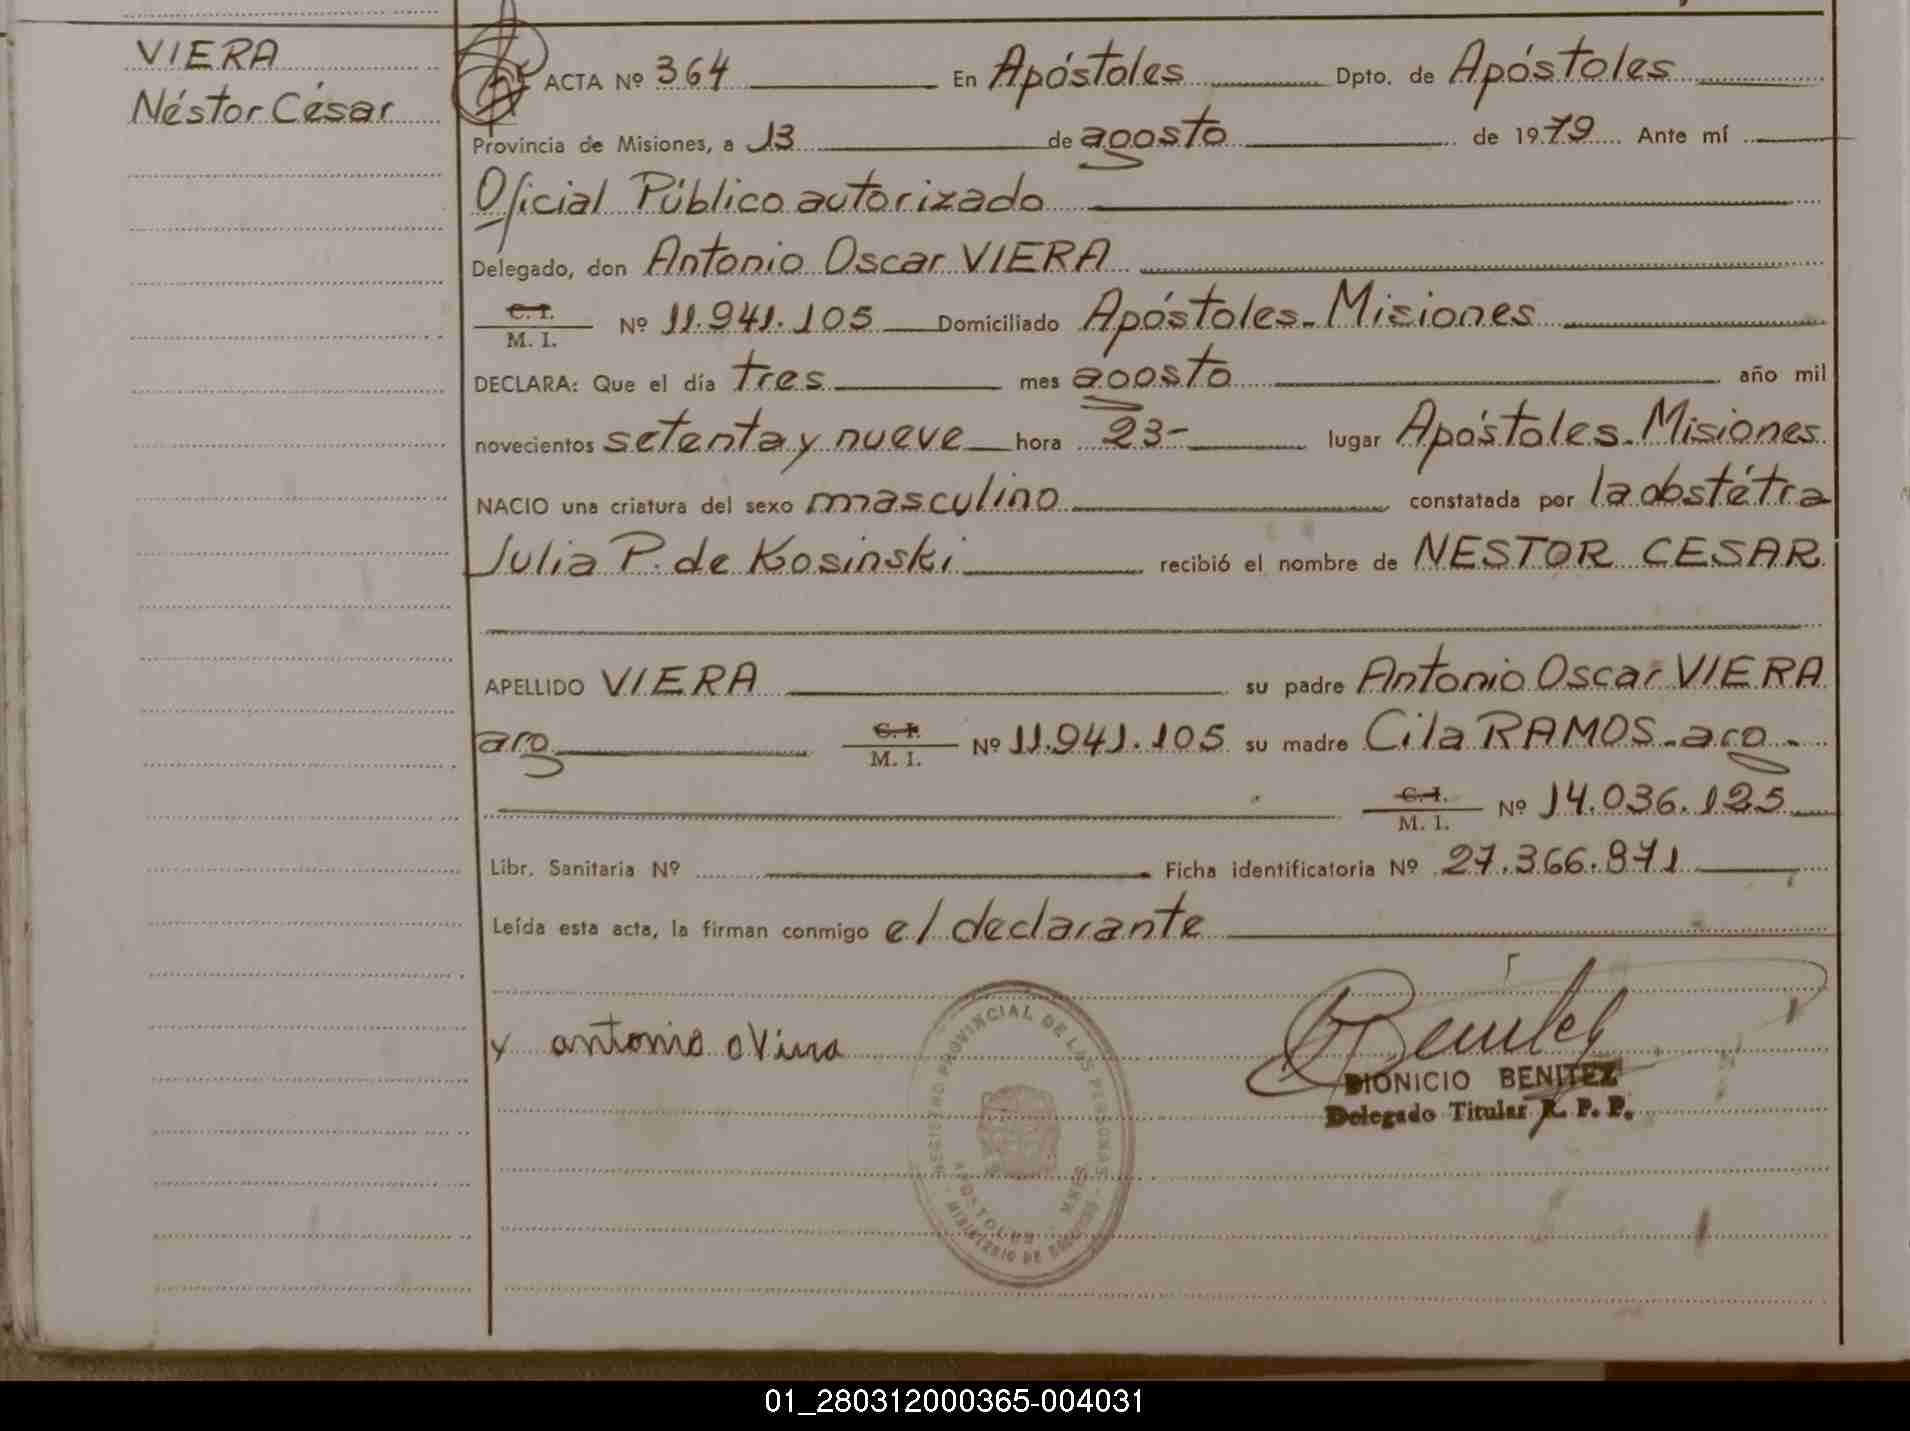 VIERA
Néstor César
ACTA Nº 364 En Apóstoles Dpto. de Apóstoles
Provincia de Misiones, a 13 de agosto de 1979 Ante mí
Oficial Público autorizado
Delegado, don Antonio Oscar VIERA
C. I.
M. I. Nº 11.941.105 Domiciliado Apóstoles-Misiones
DECLARA: Que el día tres mes agosto año mil
novecientos setenta y nueve hora 23- lugar Apóstoles-Misiones
NACIO una criatura del sexo masculino constatada por la obstétra
Julia P. de Kosinski recibió el nombre de NESTOR CESAR
APELLIDO VIERA su padre Antonio Oscar VIERA
arg C. I.
M. I. Nº 11.941.105 su madre Cila RAMOS-arg-
C. I.
M. I. Nº 14.036.125
Libr. Sanitaria Nº Ficha identificatoria Nº 27.366.871
Leída esta acta, la firman conmigo el declarante
x antonio o Viera
REGISTRO PROVINCIAL DE LAS PERSONAS
APOSTOLES - MNES
MINISTERIO DE GOBIERNO
Benitez
DIONICIO BENITEZ
Delegado Titular R. P. P.
01_280312000365-004031